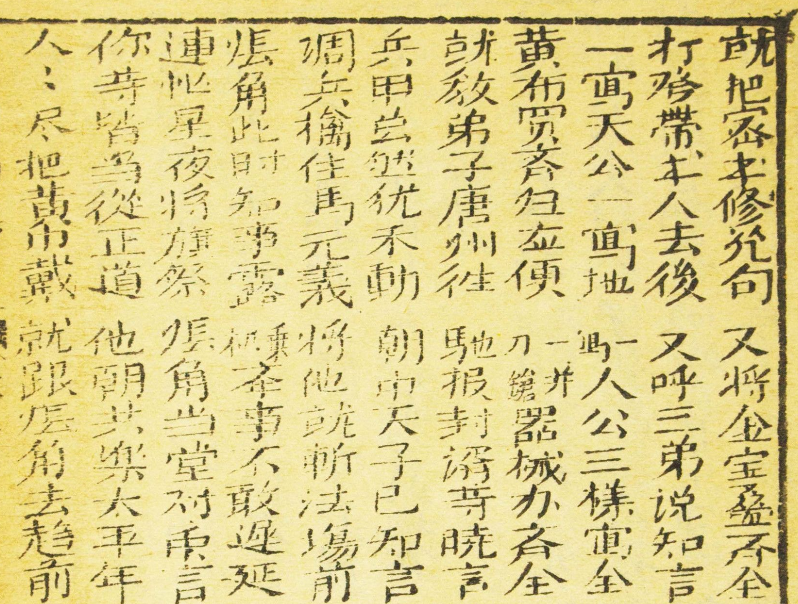 就把密本修完句 又将金宝叠齐全
打发帶本人去後 又呼三弟说知言
一寫天公一寫地 一寫人公三樣寫全
黄布買齐归在便 一并刀鎗器械办齐全
就教弟子唐州往 馳报封谞等晓言
兵甲虽然犹未動 朝中天子已知言
调兵擒住馬元義 将他就斬法場前
張角此时知事露 本事不敢遲延
連忙星夜将旗祭 張角当堂对衆言
你等皆当從正道 他朝共樂太平年
人〻尽把黄巾戴 就跟張角去趋前